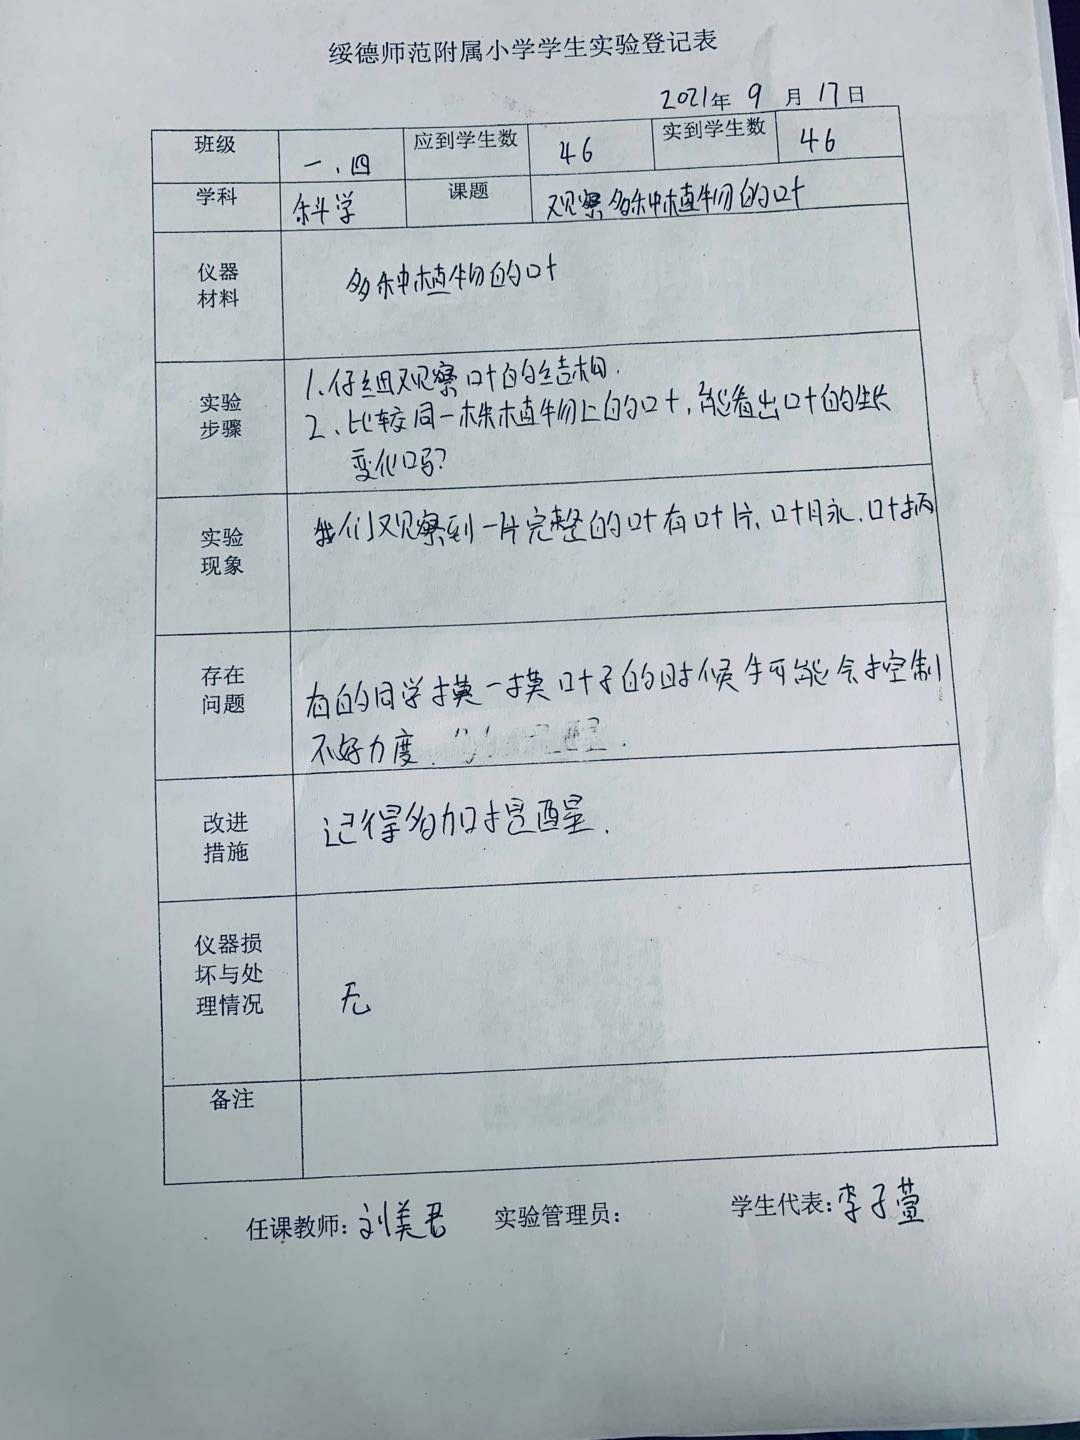 绥德师范附属小学学生实验登记表
2021年 9 月 17日
班级 一.四 应到学生数 46 实到学生数 46
学科 科学 课题 观察多种植物的叶
仪器
材料
多种植物的叶
实验
步骤
1.仔细观察叶的结构.
2、比较同一株植物上的叶,能看出叶的生长
变化吗?
实验
现象
我们观察到一片完整的叶有叶片、叶脉、叶柄
存在
问题
有的同学摸一摸叶子的时候 可能会控制
不好力度.
改进
措施
记得多加提醒.
仪器损
坏与处
理情况
无
备注
任课教师:刘美君 实验管理员: 学生代表:李子萱